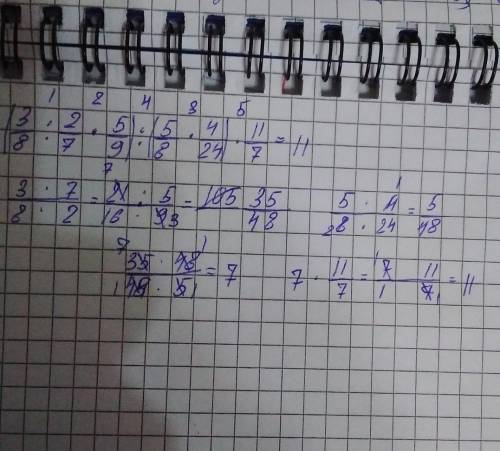 1 2 4 3 5
(3/8 : 2/7 · 5/9) : (5/8 · 4/24) · 11/7 = 11
3/8 · 7/2 = 21/16 · 5/9 3 = 105 35/48 5/8 · 4/24 = 5/48
35 · 48/48 · 5 = 7 7 · 11/7 = 7/1 11/7 = 11